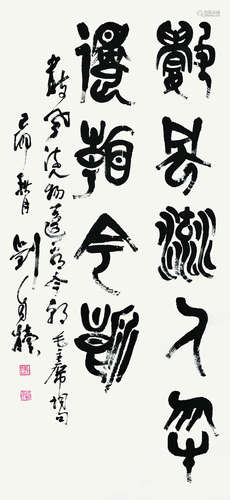 數風流人物
還看今朝
數風流人物還看今朝 毛主席詞句
劉自櫝